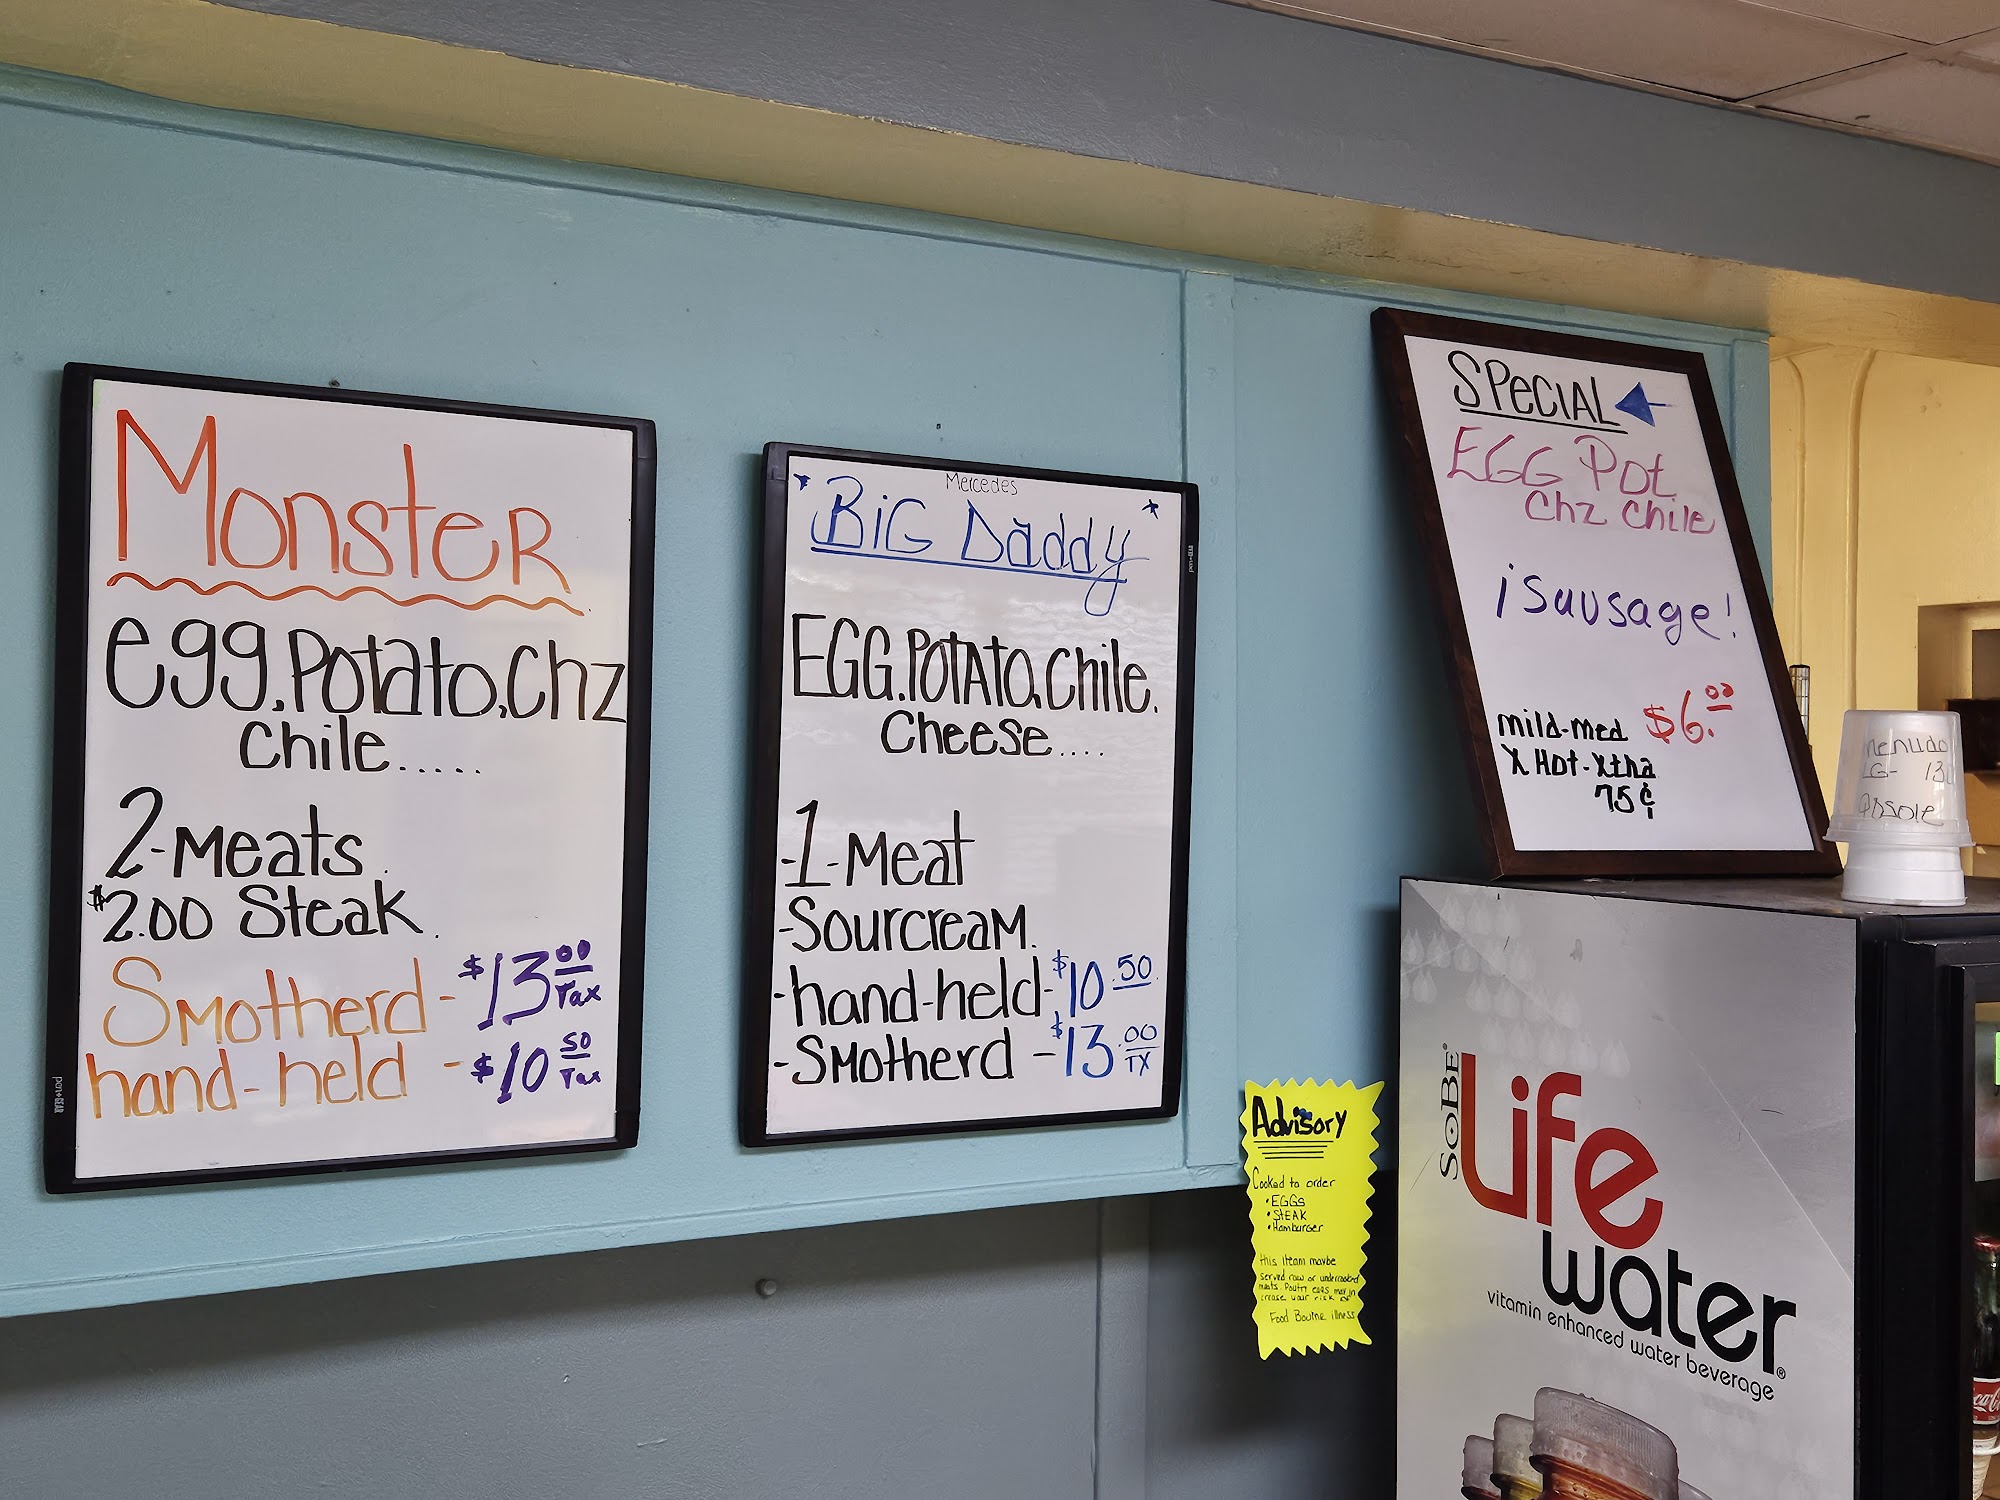 Monster
egg, Potato, Chz
Chile.....
2-Meats.
$2.00 Steak.
Smotherd - $13.00 Tax
hand-held - $10.50 Tax
pen+GEAR
Mercedes
BiG Daddy
EGG. POTATO. Chile.
Cheese....
-1-Meat
-Sourcream.
-hand-held- $10.50
-Smotherd - $13.00 TX
SPeCIAL
EGG Pot
Chz Chile
¡Sausage!
$6.00
mild-med
X Hot-Xtha
75¢
menudo
LG- 13
Posole
Advisory
Cooked to order
• EGGs
• STEAK
• Hamburger
this Iteam maybe
served raw or undercooked
meats. Poultry eggs may in
crease your risk of
Food Bourne illness
SoBe®
Life
water®
vitamin enhanced water beverage